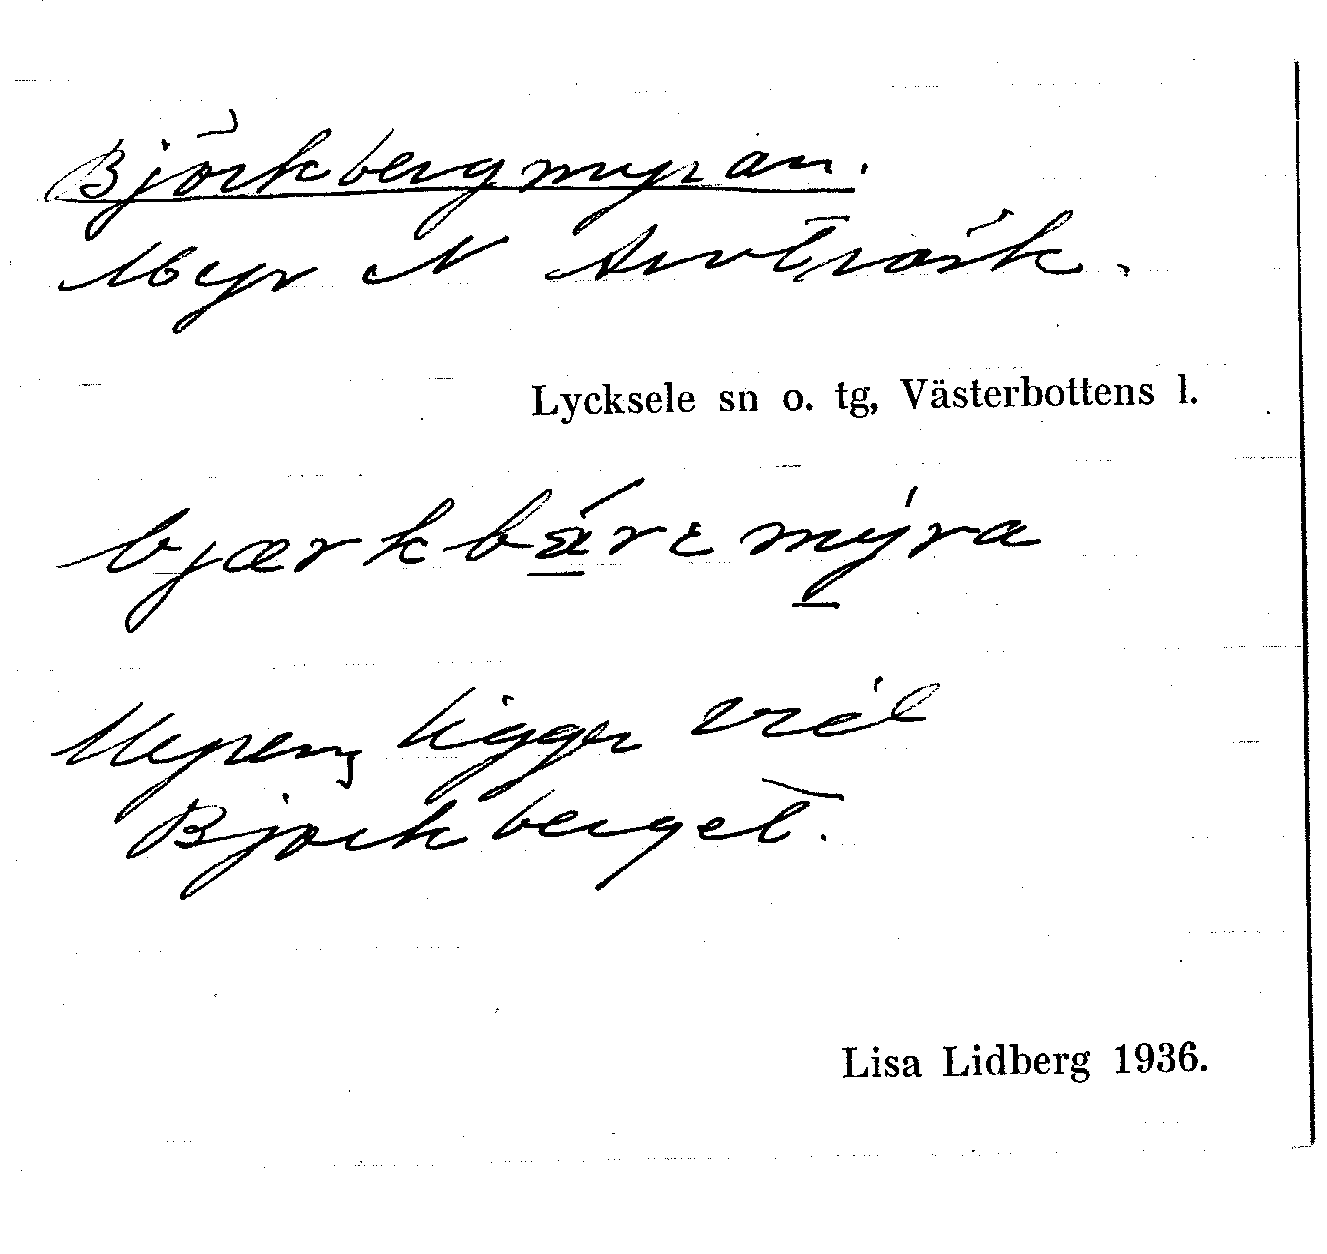 Björkbergmyran.
Myr N Arvträsk.
Lycksele sn o. tg, Västerbottens l.
bjærkbáremýra
Myren ligger vid
Björkberget.
Lisa Lidberg 1936.